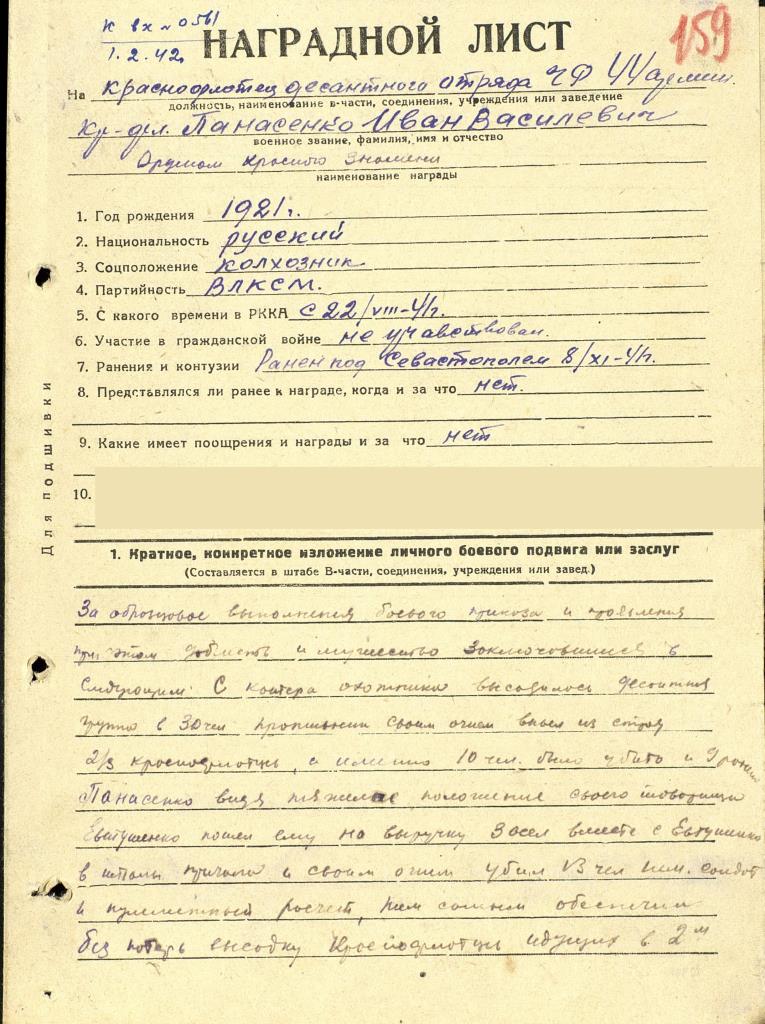 к вх № 0561
1.2.42.
159
НАГРАДНОЙ ЛИСТ
На краснофлотец десантного отряда ЧФ 44 армии.
должность, наименование в-части, соединения, учреждения или заведение
Кр-фл. Панасенко Иван Василевич
военное звание, фамилия, имя и отчество
Орденом Красного Знамени
наименование награды
1. Год рождения 1921 г.
2. Национальность русский
3. Соцположение колхозник
4. Партийность ВЛКСМ.
5. С какого времени в РККА с 22/VIII-41г.
6. Участие в гражданской войне не учавствовал.
7. Ранения и контузии Ранен под Севастополем 8/XI-41г.
8. Представлялся ли ранее к награде, когда и за что нет.
9. Какие имеет поощрения и награды и за что нет
10.
Для подшивки
1. Краткое, конкретное изложение личного боевого подвига или заслуг
(Составляется в штабе В-части, соединения, учреждения или завед.)
За образцовое выполнения боевого приказа и проявления
при этом доблесть и мужество заключовшиеся в
следующим: С катера охотника высадилось десантная
группа в 30 чел противник своим огнем вывел из строя
2/3 краснофлотцев, а именно 10 чел. было убито и 9 ранен
Панасенко видя тяжелое положение своего товарища
Евтушенко пошел ему на выручку Засел вместе с Евтушенко
в причала и своим огнем убил 13 чел нем. солдат
и пулеметный расчет, тем самым обеспечил
без потерь высадку Краснофлотцев идущих в 2м